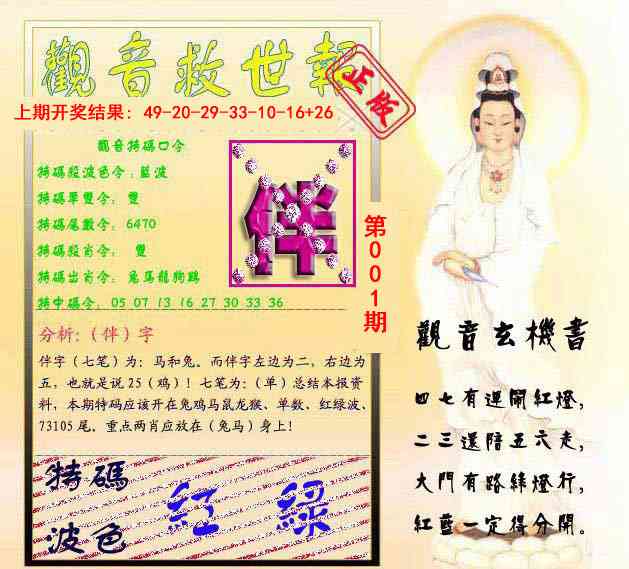 觀音救世報
正版
上期开奖结果：49-20-29-33-10-16+26
觀音特碼口令
特碼殺波色令：藍波
特碼單雙令： 雙
特碼尾數令：6470
特碼殺肖令： 雙
特碼出肖令：兔馬龍狗鷄
特中碼令：05 07 13 16 27 30 33 36
伴
第001期
分析：（伴）字
伴字（七笔）为：马和兔。而伴字左边为二，右边为
五，也就是说 25（鸡）！七笔为：（单）总结本报资
料，本期特码应该开在兔鸡马鼠龙猴、单数、红绿波、
73105 尾。重点两肖应放在（兔马）身上！
特碼
波色
紅 綠
觀音玄機書
四七有運鬧紅燈，
二三還陪五六走，
大門有路綠燈行，
紅藍一定得分開。